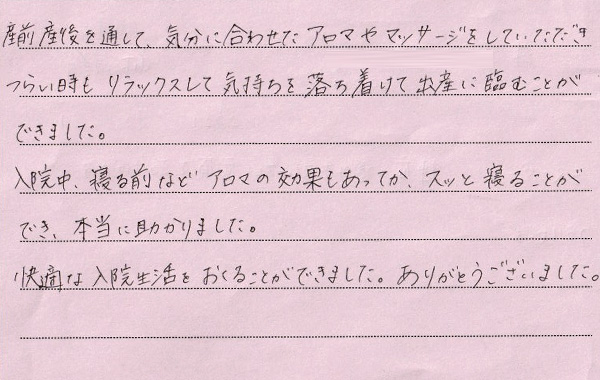 産前産後を通して、気分に合わせたアロマやマッサージをしていただき
つらい時もリラックスして気持ちを落ち着けて出産に臨むことが
できました。
入院中、寝る前などアロマの効果もあってか、スッと寝ることが
でき、本当に助かりました。
快適な入院生活をおくることができました。ありがとうございました。